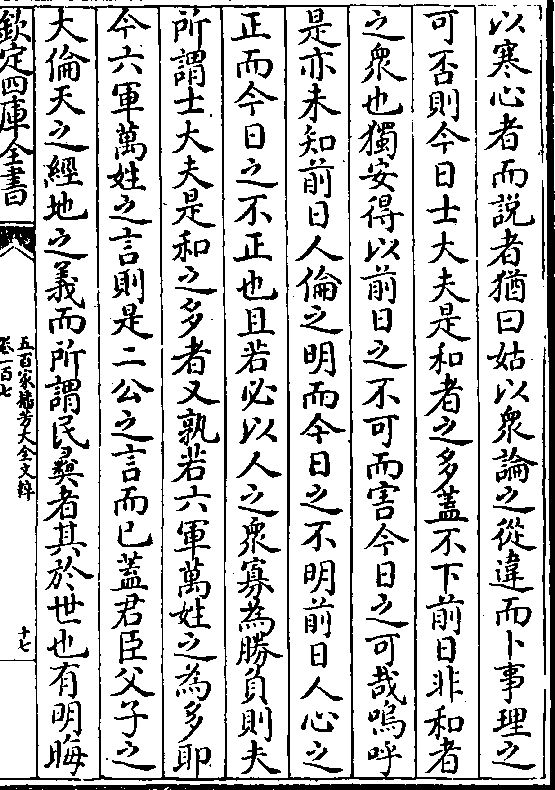 以寒心者而説者猶曰姑以衆論之從違而卜事理之
可否則今日士大夫是和者之多蓋不下前日非和者
之衆也獨安得以前日之不可而害今日之可哉嗚呼
是亦未知前日人倫之明而今日之不明前日人心之
正而今日之不正也且若必以人之衆寡為勝負則夫
所謂士大夫是和之多者又孰若六軍萬姓之為多耶
今六軍萬姓之言則是二公之言而已蓋君臣父子之
大倫天之經地之義而所謂民彞者其於世也有明晦
欽定四庫全書
五百家播芳大全文粹
卷一百七
十七